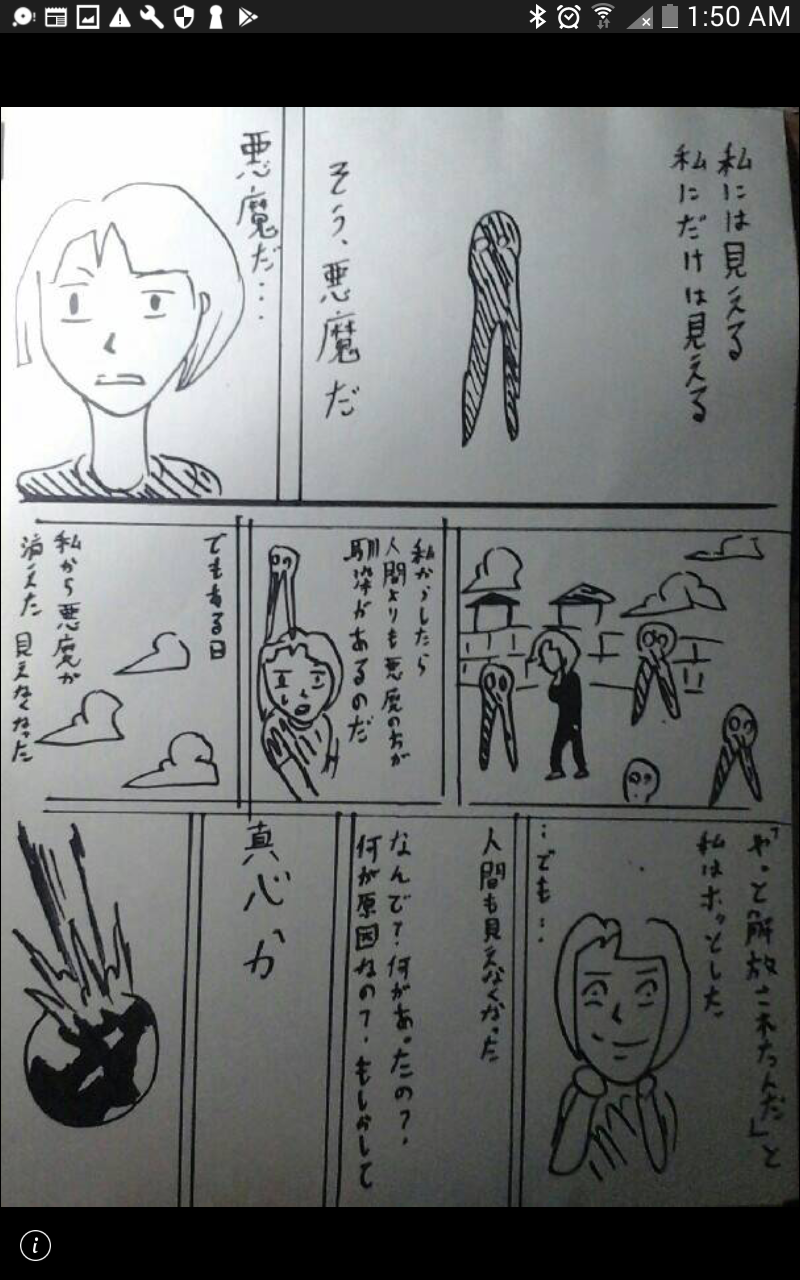 1:50 AM
私には見える
私にだけは見える
そう、悪魔だ
悪魔だ…
私からしたら
人間よりも悪魔の方が
馴染があるのだ
でもある日
私から悪魔が
消えた 見えなくなった
「やっと解放されたんだ」と
私はホッとした
…でも…
人間も見えなくなった
なんで?何があったの?
何が原因なの?もしかして
真心か